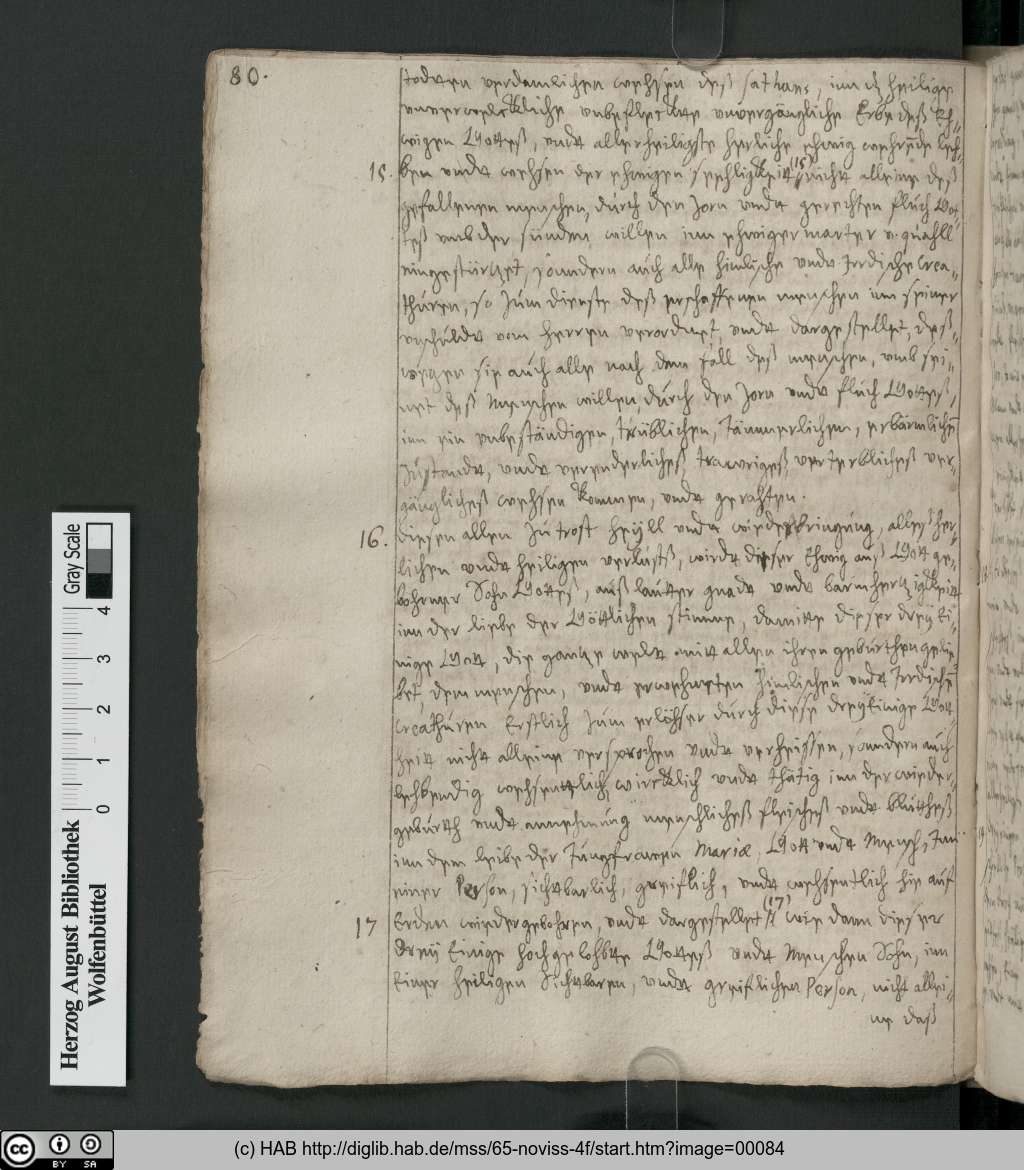 80.
todten verdamlichen wehsen deß sathans, inn dz heilige
unverwelckliche unbefleckte unvergängliche Erbe deß Eh-
wigen Gotteß, undt allerheiligste herliche ehwig wehrende leh-
15. ben undt wehsen der ehwigen seehligkeit (15) nicht alleine deß
gefallenen menschen, durch den Zorn undt gerechten fluch Got-
teß umb der sünden willen inn ehwiger marter v. quahll
eingestürtzet, sonndern auch alle himlische undt Irrdische Crea-
thuren, so zum dienste deß erschaffenen menschen inn seiner
unschuldt vom herren verordnet, undt dargestellet, deß-
wegen sie auch alle nach dem fall deß menschen, umb sei-
net deß Menschen willen, durch den Zorn undt fluch Gotteß,
inn ein unbeständigen, trüblichen, Jämmerlichen, erbärmlichen
Zustandt, undt verenderlicheß, trawrigeß, verterblicheß ver-
gänglicheß wehsen kommen, undt gerahten.
16. diesen allen zu trost heyll undt wiederbringung, alleß her-
lichen undt heiligen verlustß, wirdt dieser Ehwig auß Gott ge-
bohrner Sohn Gotteß, auß lautter gnadt undt barmhertzigkeit
inn der liebe der Göttlichen stimme, damitte dieser dreyEi-
nige Gott, die gantze weldt mitt allen ihren geburthen gelie-
bet, dem menschen, undt erwehneten Himlischen undt Irrdischen
Creathuren Erstlich zum erlöhser durch diese dreyEinige Gott-
heit nicht alleine versprochen undt verheissen, sonndern auch
lehbendig wehsentlich, wircklich undt thätig inn der wieder-
geburth undt annehmung menschlicheß fleischeß undt bluttheß
inn dem leibe der Jungfrawen Mariæ, Gott undt Mensch, Inn
einer Person, sichtbarlich, greiflich, undt wehsentlich hie auf
17 Erden wiedergebohren, undt dargestellet (17) wie dann dieser
drey Einige hochgelohbte Gotteß undt Menschen Sohn, inn
Einer heiligen Sichtbaren, undt greiflichen Person, nicht allei-
ne daß
Gray Scale
4
3
2
1
0
Herzog August Bibliothek
Wolfenbüttel
cc BY SA
(c) HAB http://diglib.hab.de/mss/65-noviss-4f/start.htm?image=00084